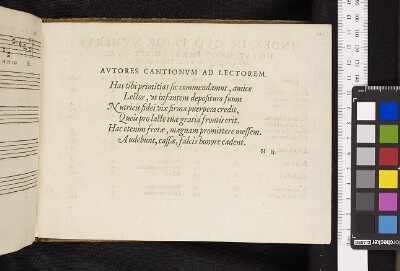 AVTORES CANTIONVM AD LECTOREM.
Has tibi primitias sic commendamus, amice
Lector, vt infantem depositura suum
Nutricis fidei vix firma puerpera credit,
Queis pro lacte tuæ gratia frontis erit.
Hac etenim fretæ, magnam promittere messem,
Audebunt, cassæ, falcis honore cadent.
H ij.